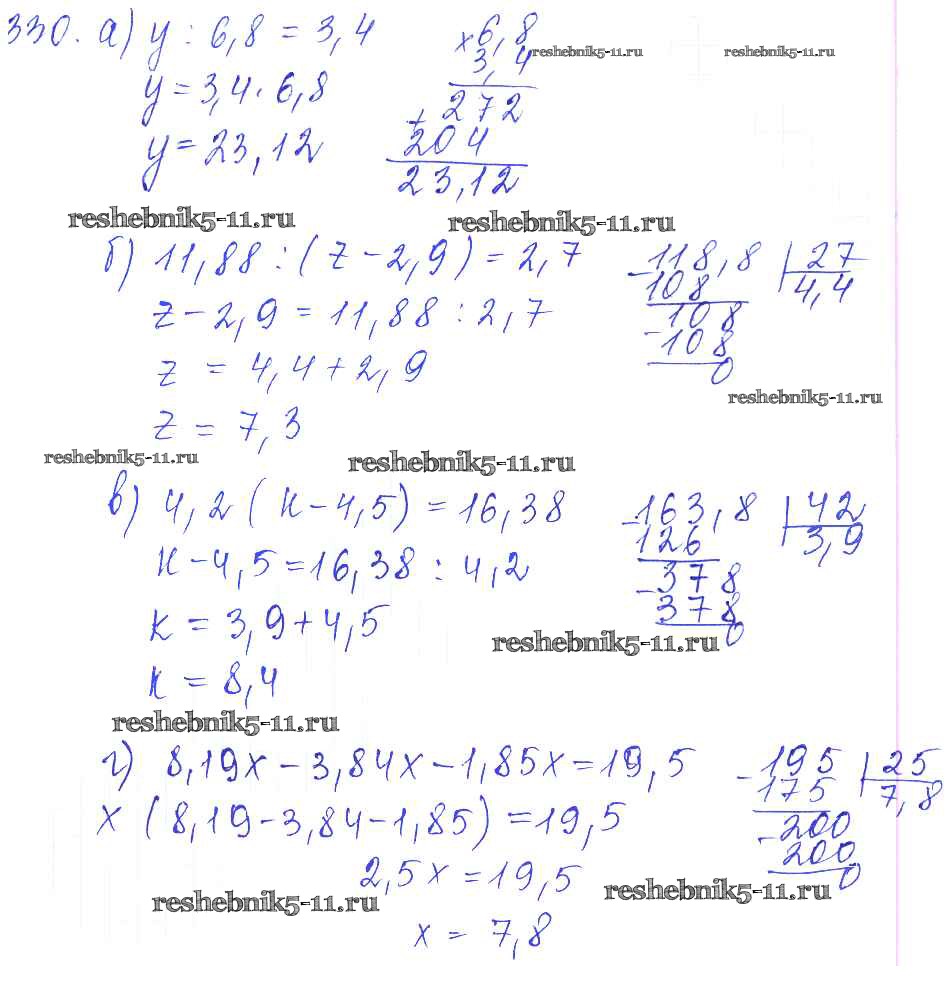 330. а) y : 6,8 = 3,4
y = 3,4 · 6,8
y = 23,12
× 6,8
3,4
+ 272
204
23,12
reshebnik5-11.ru
reshebnik5-11.ru
reshebnik5-11.ru
reshebnik5-11.ru
б) 11,88 : (z - 2,9) = 2,7
z - 2,9 = 11,88 : 2,7
z = 4,4 + 2,9
z = 7,3
- 118,8 | 27
108 4,4
- 108
108
0
reshebnik5-11.ru
reshebnik5-11.ru
reshebnik5-11.ru
в) 4,2 (к - 4,5) = 16,38
к - 4,5 = 16,38 : 4,2
к = 3,9 + 4,5
к = 8,4
- 163,8 | 42
126 3,9
- 378
378
0
reshebnik5-11.ru
reshebnik5-11.ru
г) 8,19x - 3,84x - 1,85x = 19,5
x (8,19 - 3,84 - 1,85) = 19,5
2,5x = 19,5
x = 7,8
- 195 | 25
175 7,8
- 200
200
0
reshebnik5-11.ru
reshebnik5-11.ru